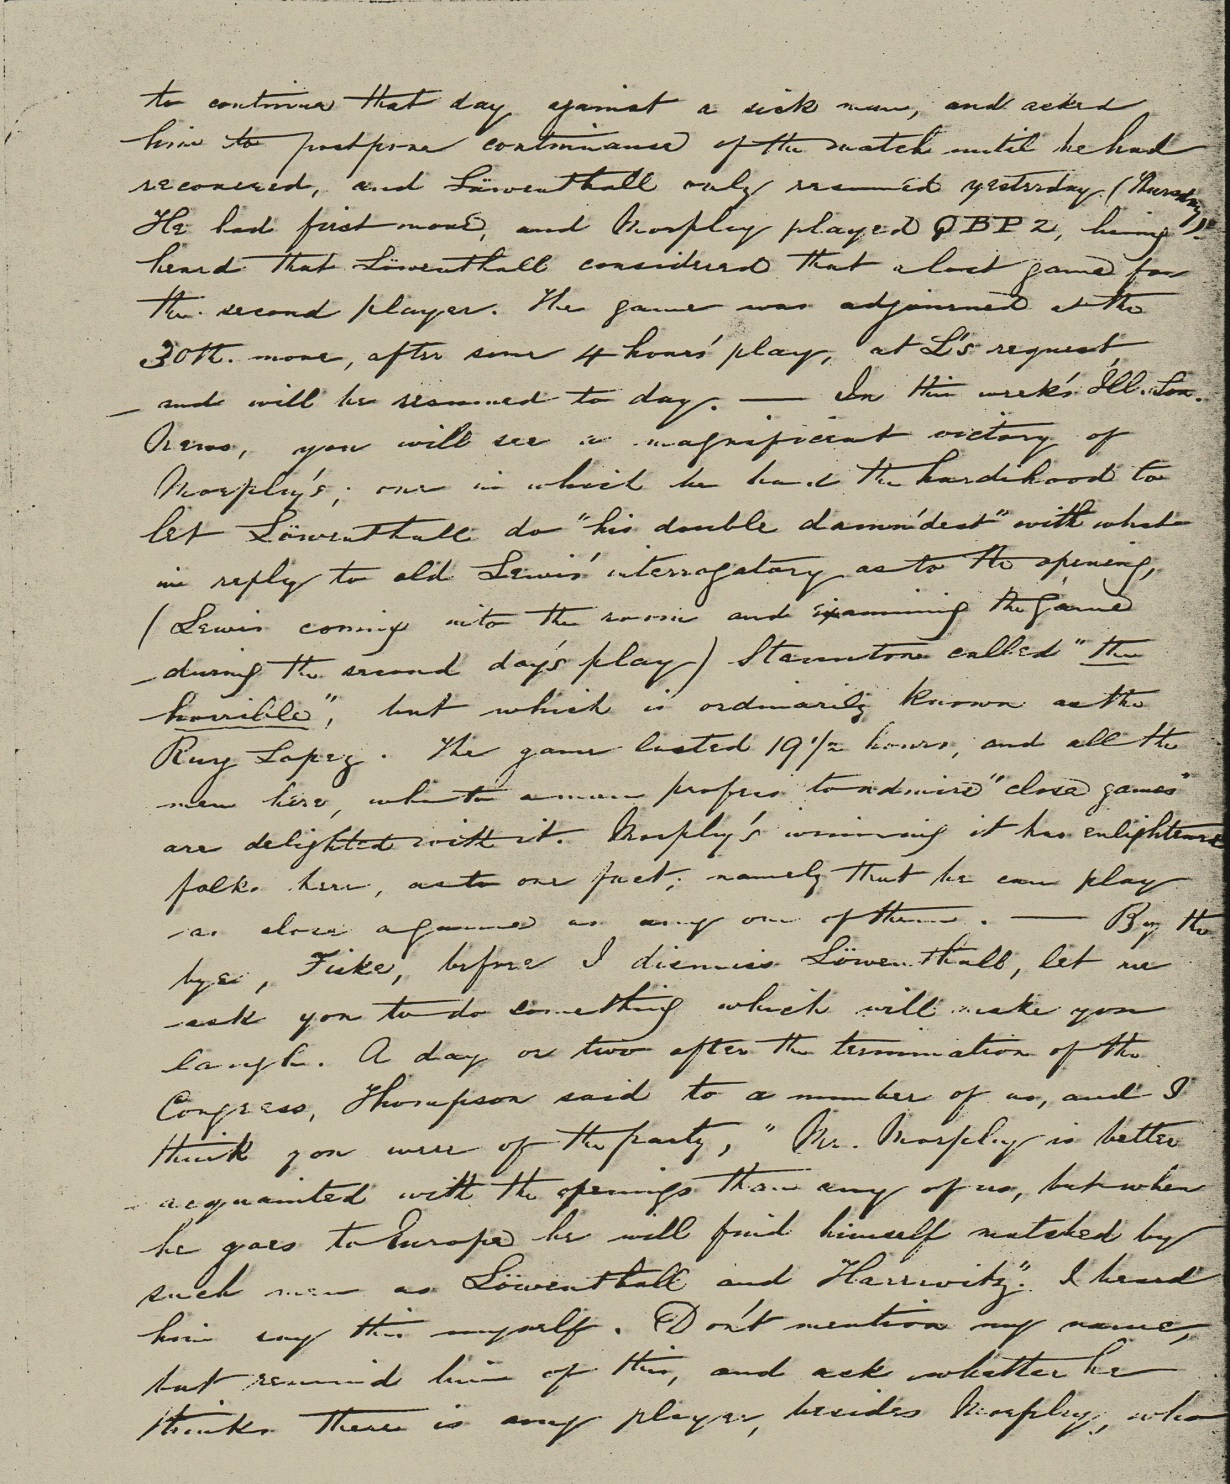 to continue that day against a sick man, and asked
him to postpone continuance of the match until he had
recovered, and Löwenthall only resumed yesterday (Thursday).
He had first move, and Morphy played QBP2, having
heard that Löwenthall considered that a lost game for
the second player. The game was adjourned at the
30th. move, after some 4 hours' play, at L's request,
and will be resumed to day. — In this week's Ill. Lon.
News, you will see a magnificent victory of
Morphy's; one in which he had the hardihood to
let Löwenthall do "his double damn'dest" with what
in reply to old Lewis' interrogatory as to the opening,
(Lewis coming into the room and examining the game
during the second day's play) Staunton called "the
horrible", but which is ordinarily known as the
Ruy Lopez. The game lasted 19 1/2 hours, and all the
men here, who to a man profess to admire "close games"
are delighted with it. Morphy's winning it has enlightened
folks here, as to one fact; namely that he can play
as close a game as any one of them. — By the
bye, Fiske, before I dismiss Löwenthall, let me
ask you to do something which will make you
laugh. A day or two after the termination of the
Congress, Thompson said to a number of us, and I
think you were of the party, "Mr. Morphy is better
acquainted with the openings than any of us, but when
he goes to Europe he will find himself matched by
such men as Löwenthall and Harrwitz". I heard
him say this myself. Don't mention my name,
but remind him of this, and ask whether he
thinks there is any player, besides Morphy, who